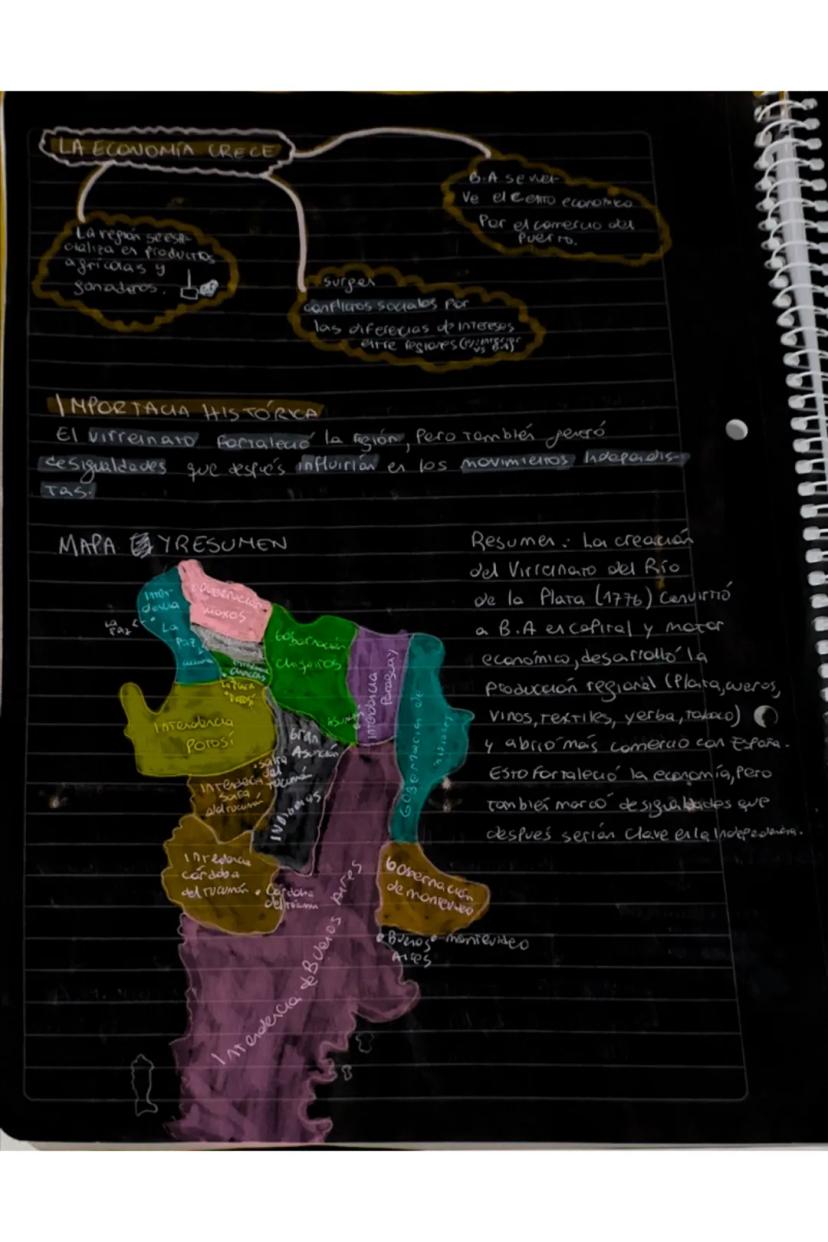 LA ECONOMÍA CRECE
B.A se vuel-
ve el centro economico
Por el comercio del
puerto.
La región se espe-
cializa en productos
agricolas y
ganaderos.
surgen
conflictos sociales por
las diferecias de intereses
entre regiones
IMPORTACIA HISTÓRICA
El virreinato fortaleció la región, pero también generó
desigualdades que después influirían en los movimientos independis-
tas.
MAPA Y RESUMEN
Resumen: La creación
del Virreinato del Río
de la Plata (1776) convirtió
a B.A en capital y motor
económico, desarrolló la
producción regional (Plata, cueros,
vinos, textiles, yerba, tabaco)
y abrió más comercio con España.
Esto fortaleció la economía, pero
también marcó desigualdades que
después serían clave en la independencia.
La Paz
Gobernación
moxos
Gobernación
chiquitos
Intendencia
Paraguay
Intendencia
Potosí
Gran
Asunción
Indígenas
Intendencia
Salta
del tucumán
Intedencia
córdoba
del tucumán
Córdoba
del tucumán
Gobernación
de montevideo
Buenos
Aires
montevideo
Intendencia de Buenos Aires